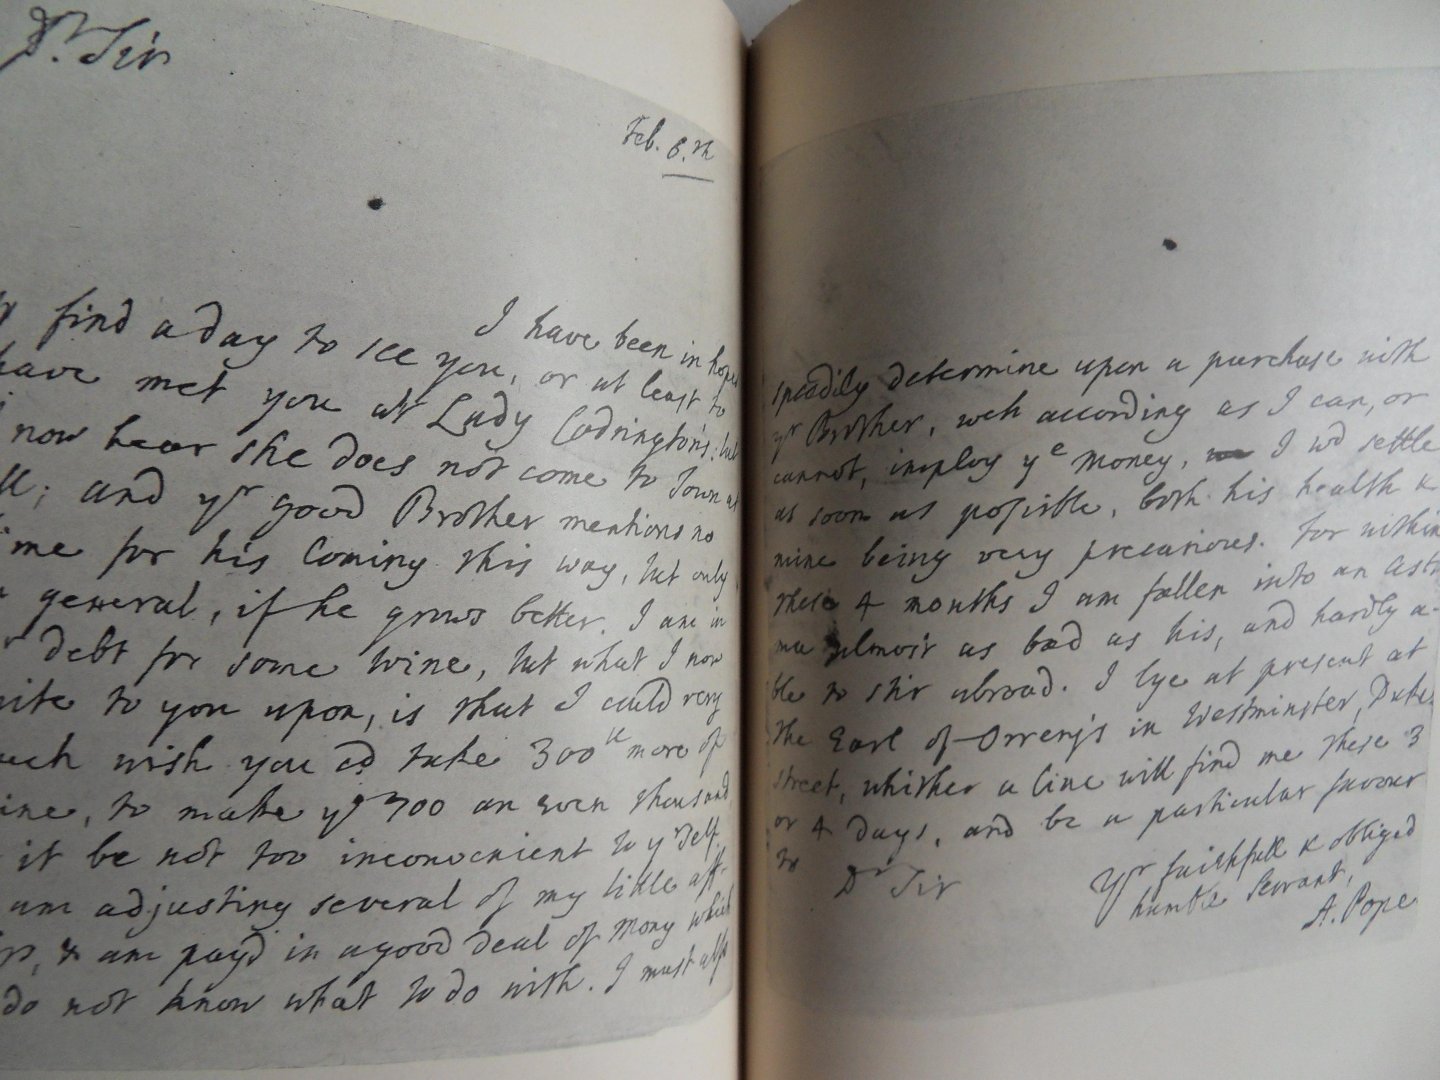 Dr. Sir
Feb. 6.th
I have been in hopes
find a day to see you, or at least to
have met you at Lady Codrington's: but
now hear she does not come to Town at
and yr good Brother mentions no
time for his Coming this way, but only
general, if he grows better. I am in
debt for some wine, but what I now
write to you upon, is that I could very
much wish you cd take 300ll more of
mine, to make ye 700 an even thousand,
it be not too inconvenient to yrself.
am adjusting several of my little aff-
& am pay'd in a good deal of Mony which
do not know what to do with. I must also
speedily determine upon a purchase with
yr Brother, wch according as I can, or
cannot, imploy ye Money, I wd settle
as soon as possible, both his health &
mine being very precarious. For within
these 4 months I am fallen into an Asth
ma almost as bad as his, and hardly a-
ble to stir abroad. I lye at present at
the Earl of Orrery's in Westminster, Duke
street, whither a line will find me these 3
or 4 days, and be a particular favour
to
Dr Sir
Yr faithfull & obliged
humble Servant,
A. Pope